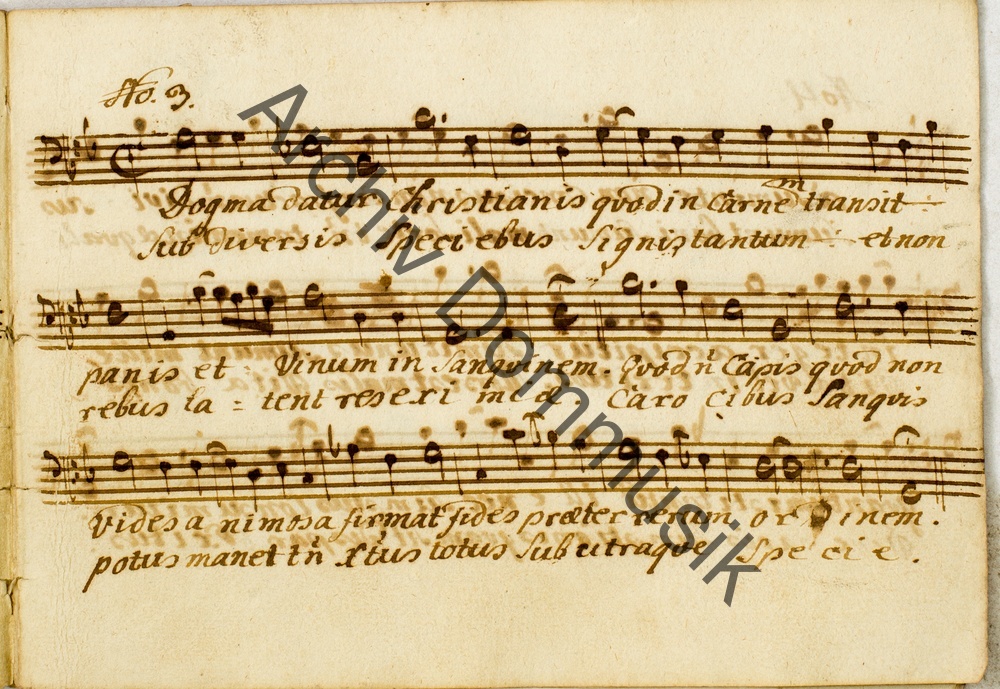 No. 3.
Dogma datur Christianis quod in Carnē transit
Sub diversis Speciebus Signis tantum et non
panis et Vinum in Sanguinem. Quod n̄ Capis quod non
rebus la = tent res exi mæ Caro cibus Sanguis
vides a nimosa firmat fides præter rerum ordinem.
potus manet tn̄ Xtus totus Sub utraque Specie.
Archiv Dommusik